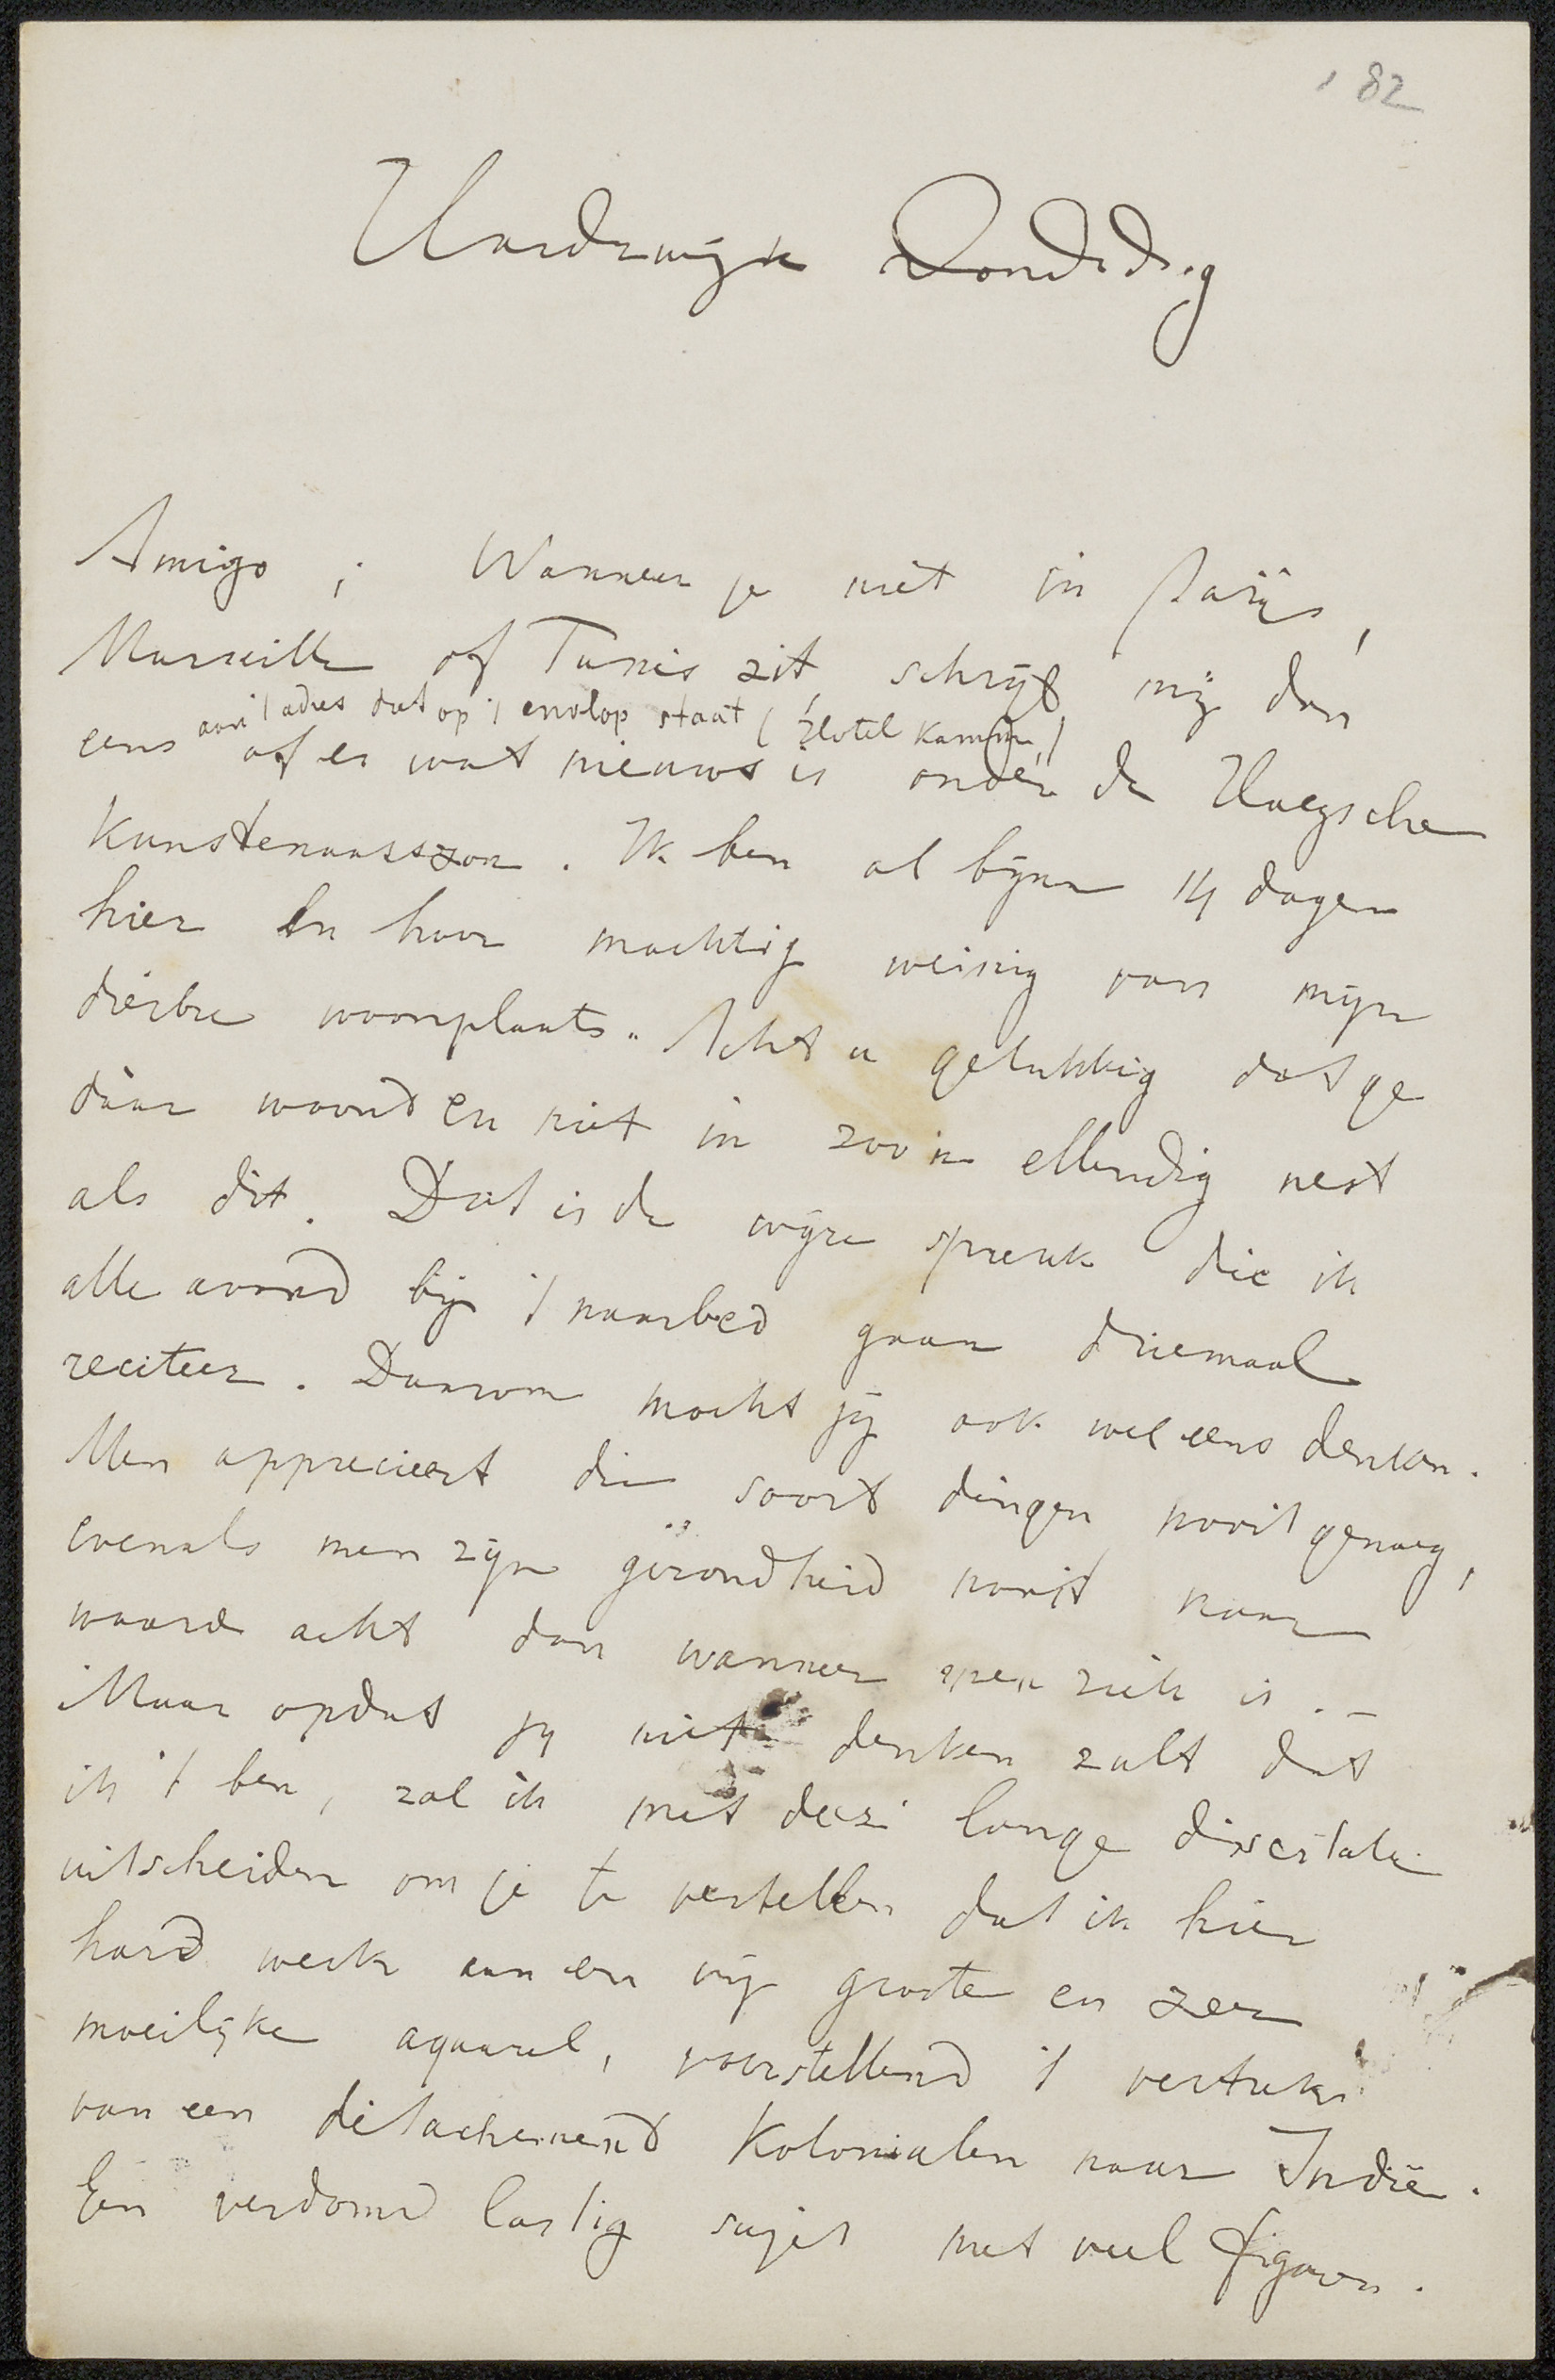 '82
Harderwijk Donderdag
Amigo; Wanneer je niet in Parijs,
Marseille of Tunis zit, schrijf mij dan
aan 't adres dat op 't envlop staat (Hotel Kamm.)
eens of er wat nieuws is onder de Haagsche
kunstenaarszon. Ik ben al bijna 14 dagen
hier en hoor machtig weinig van mijn
dierbre woonplaats. Acht u gelukkig dat ge
dáár woond en niet in zoo'n ellendig nest
als dit. Dat is de wijze spreuk die ik
alle avond bij 't naarbed gaan driemaal
reciteer. Daarom mocht jij ook wel eens denken.
Men apprecieert die soort dingen nooit genoeg,
evenals men zijn gezondheid nooit naar
waarde acht dan wanneer men ziek is. –
Maar opdat jij niet denken zult dat
ik 't ben, zal ik met deze lange dissertatie
uitscheiden om je te vertellen dat ik hier
hard werk aan een vrij groote en zeer
moeilijke aquarel, voorstellend 't vertrek
van een détachemend Kolonialen naar Indië.
Een verdomd lastig sujet met veel figuren.